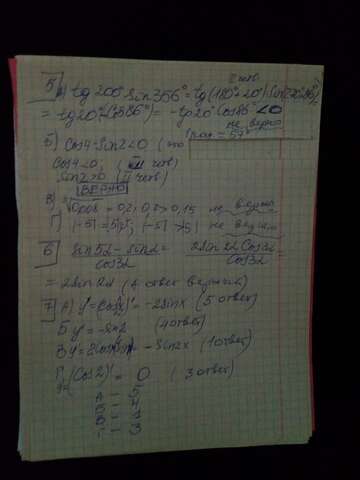 II четв
5 А) tg 200° sin 356° = tg (180°+20°) sin(270°+86°)
= tg 20° (-cos 86°) = -tg 20° cos 86° < 0
не верно
1рад. = 57°
Б) cos4 - sin2 < 0
cos4 < 0, (III четв)
sin2 > 0 (II четв)
ВЕРНО
В) √0,008 = 0,2; 0,2 > 0,15 не верно
Г) |-5| = 5; |-5| > 5 не верно
6 sin5α - sinα / cos3α = 2sin2α cos3α / cos3α =
= 2sin2α (4 ответ верный)
7 А) y' = -2sinx (5 ответ)
Б y' = -sin2 (4 ответ)
В y' = - sin2x (1 ответ)
Г (cos2)' = 0 (3 ответ)
А - 5
Б - 4
В - 1
Г - 3